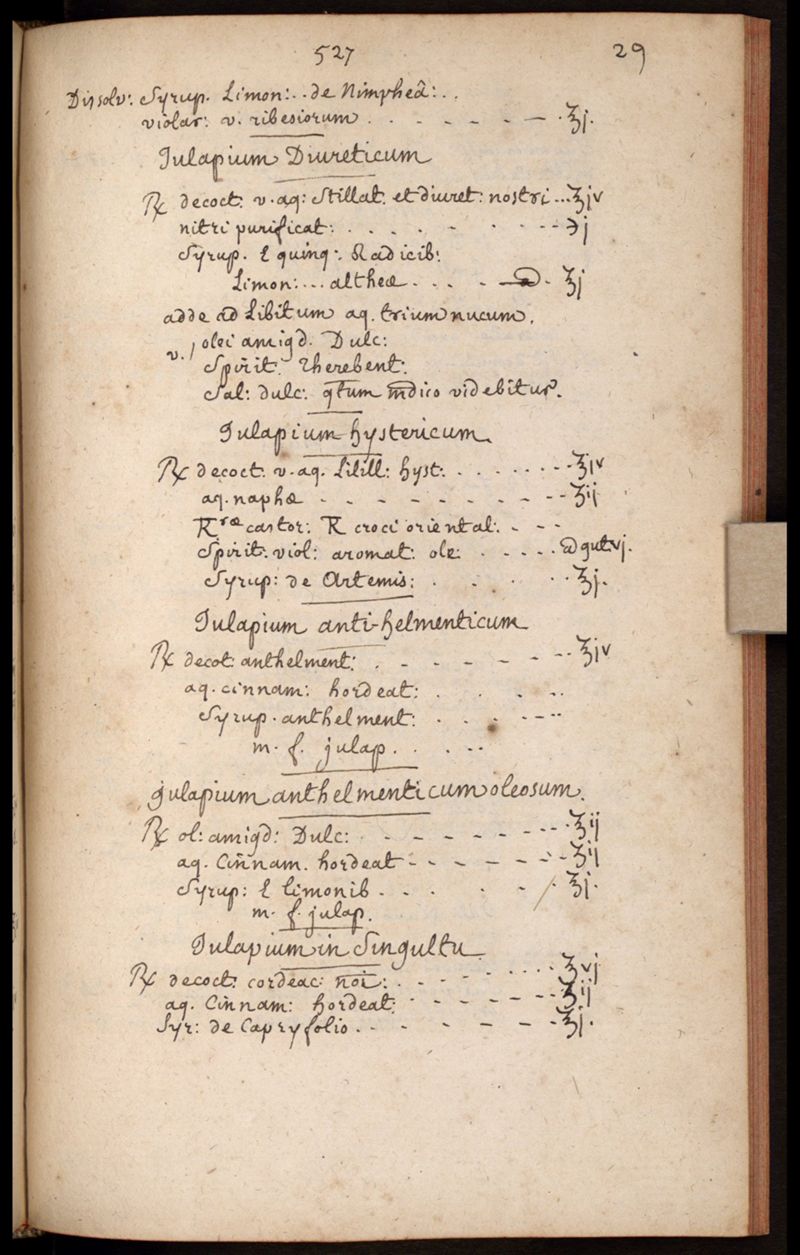 527 29
Dissolv: Syrup. Limon: .. de Nimpheâ: ..
violar: v. ribesiorum . . - - - - — ℥j.
Julapium Diureticum
℞ decoct. v. aq: Stillat. et diuret: nostri ... ℥jv
nitri purificat: . . . . - - · - - ℈j
Syrup. è quinq: Radicib:
Limon: ... altheæ . . . - — ā . ℥j
adde ad Libitum aq. trium nucum.
olei amigd. Dulc:
v. / Spirit. Therebent:
Sal: dulc: qtum mdico videbitur.
Julapium hystericum
℞ decoct. v. aq. Still: hyst. . . . . . . - - ℥iv
aq. naphæ - - - - - - - - - ℥ij
Træ castor: T croci oriental: - - -
Spirit. viol: aromat: ole: . . . . . ā gut vj.
Syrup: de Artemis: . . . . . . ℥j.
Julapium anti-helmenticum
℞ decot: anthelment: . - - - - - - - ℥iv
aq. cinnam: hordeat: . . . ..
Syrup. anthelment: . . . . - - ..
m. f. julap. . . . ..
julapium anthelmenticum oleosum.
℞ ol: amigd: Dulc: - - - - - - - - ℥ij
aq. Cinnam. hordeat - - - - - - - ℥ij
Syrup: è limonib - . . . - ℥j.
m. f. julap.
Julapium in Singultu
℞ decoct: cordeac: nŏi: . - - - . . . . ℥vj
aq. Cinnam: hordeat. - - - - - - ℥ij
Syr: de Capryfolio . - - - - - - ℥j.